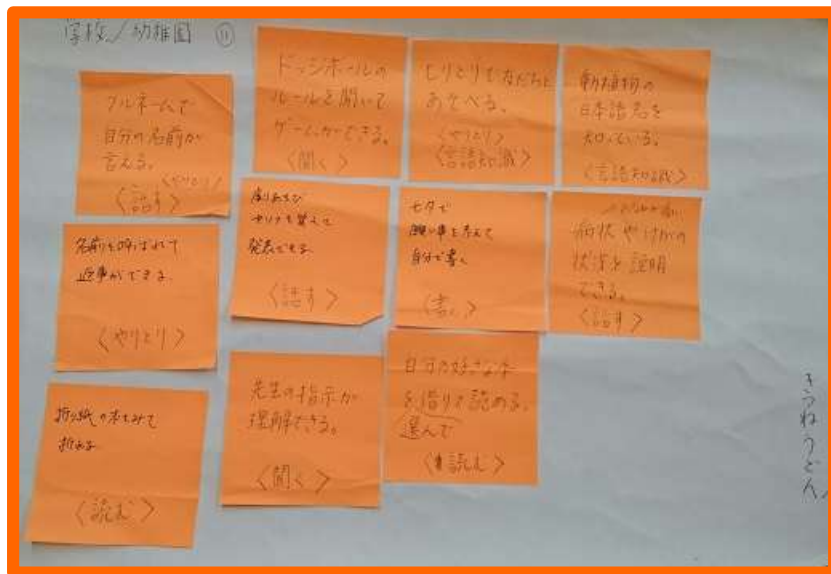 学校/幼稚園 ⑪
フルネームで
自分の名前が
言える。
(やりとり)
〈話す〉
ドッジボールの
ルールを聞いて
ゲームができる。
〈聞く〉
しりとりで友だちと
あそべる。
〈やりとり〉
〈言語知識〉
動植物の
日本語名を
知っている。
〈言語知識〉
名前を呼ばれて
返事ができる
〈やりとり〉
劇あそび
セリフを覚えて
発表できる
〈話す〉
七夕で
願い事を考えて
自分で書く
〈書く〉
病状やけがの
状況を説明
できる。
〈話す〉
折り紙の本をみて
折れる
〈読む〉
先生の指示が
理解できる。
〈聞く〉
自分の好きな本
を借りて読める。
選んで
〈読む〉
きつねうどん